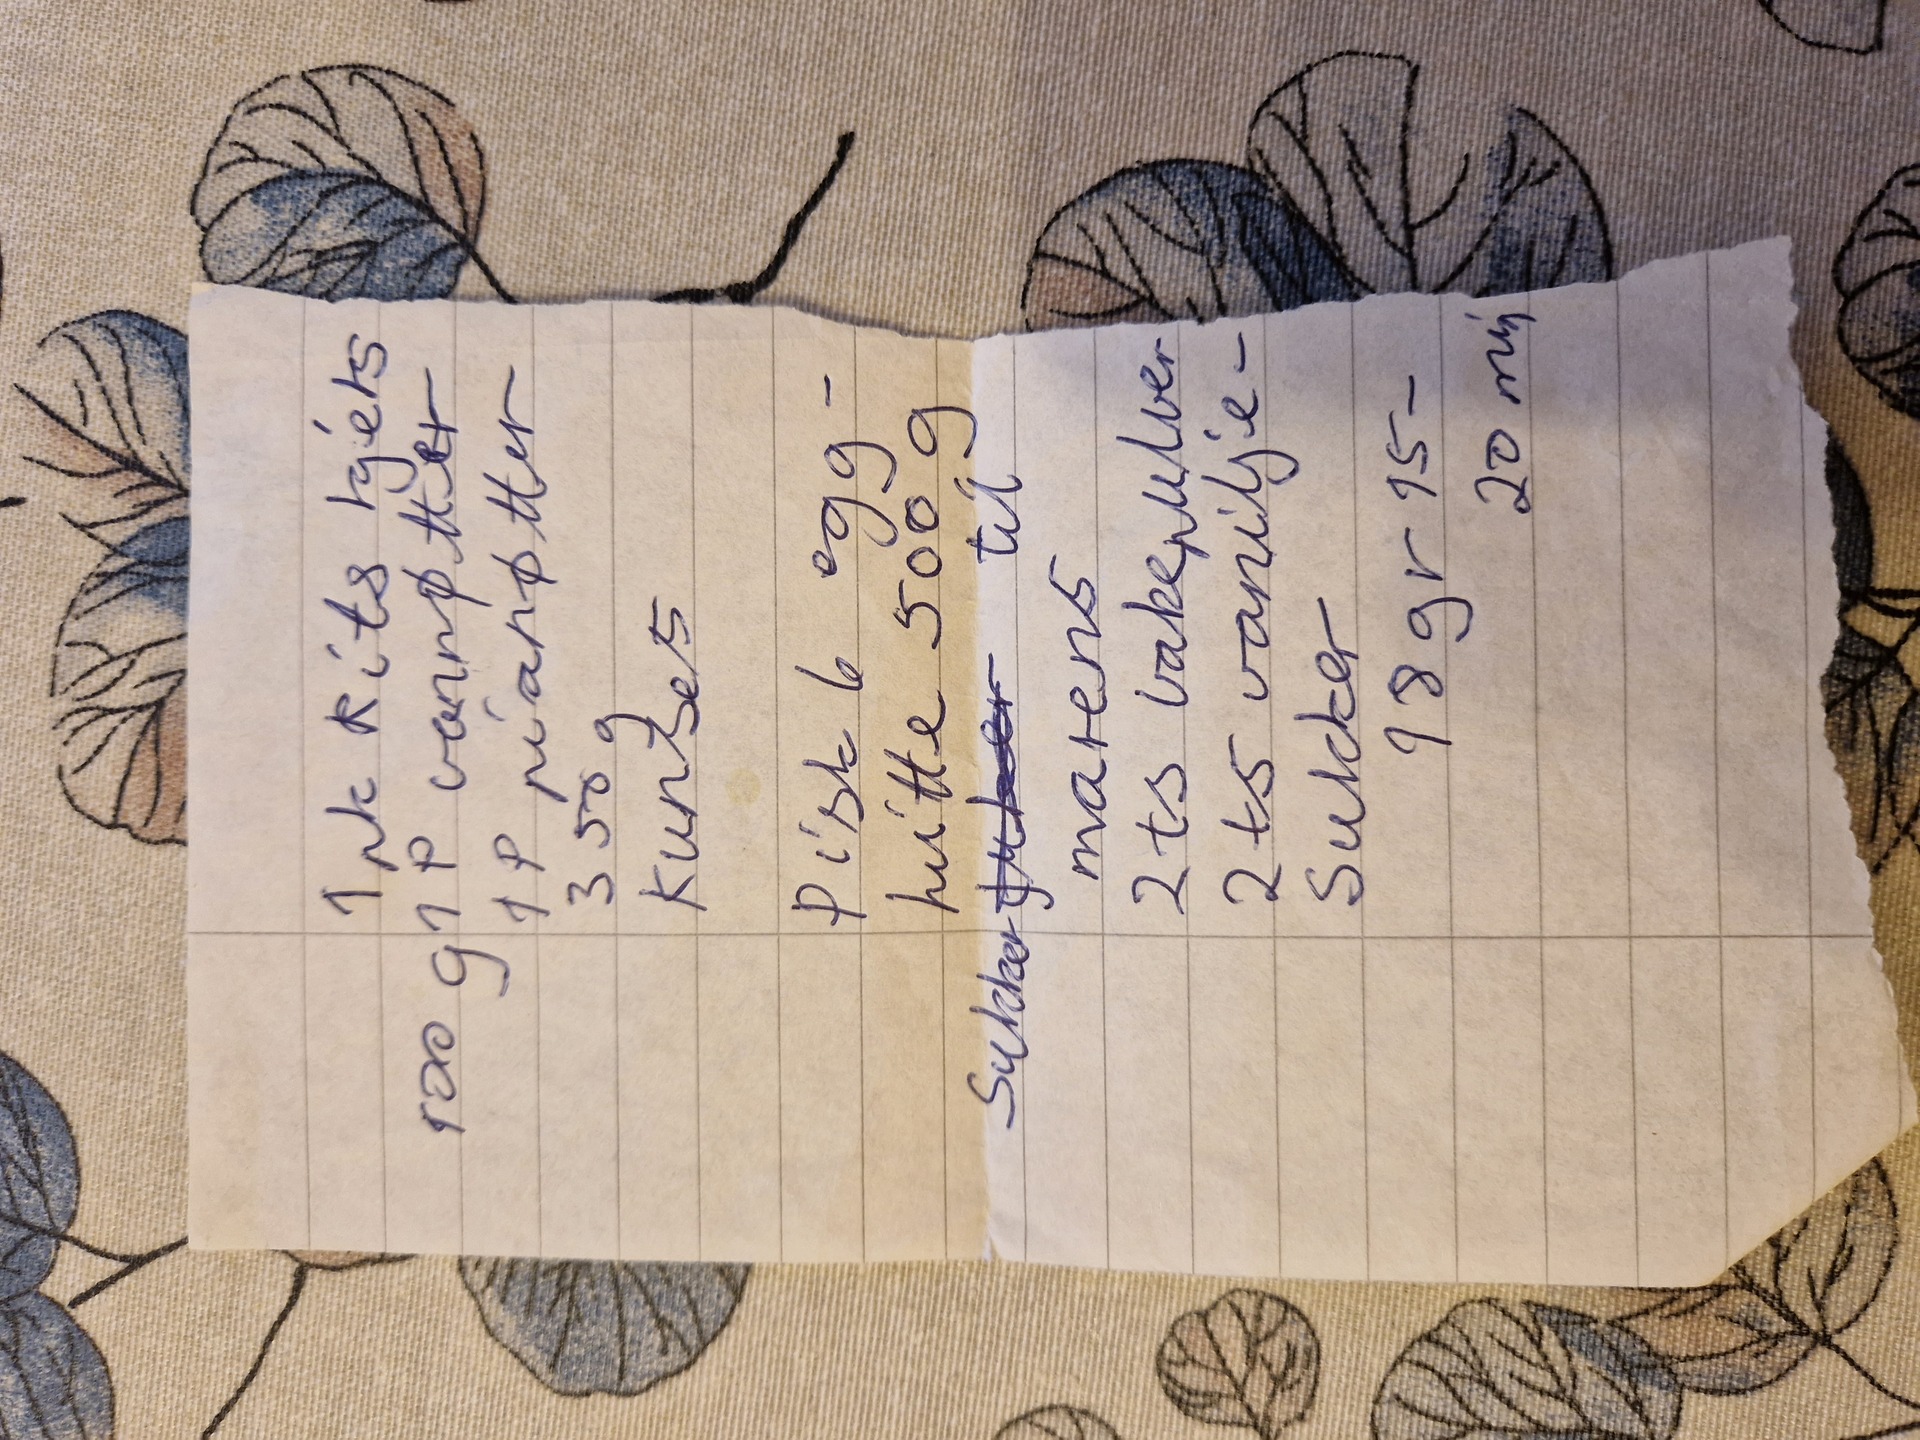 1 pk Kits kjeks
100 g 1 P vannøtter
1 P pianøtter
350 g
Kunses
Pisk 6 egg-
hvitte 500 g
Sukker til
marens
2 ts bakepulver
2 ts vanilje-
Sukker
18 gr 15-
20 min